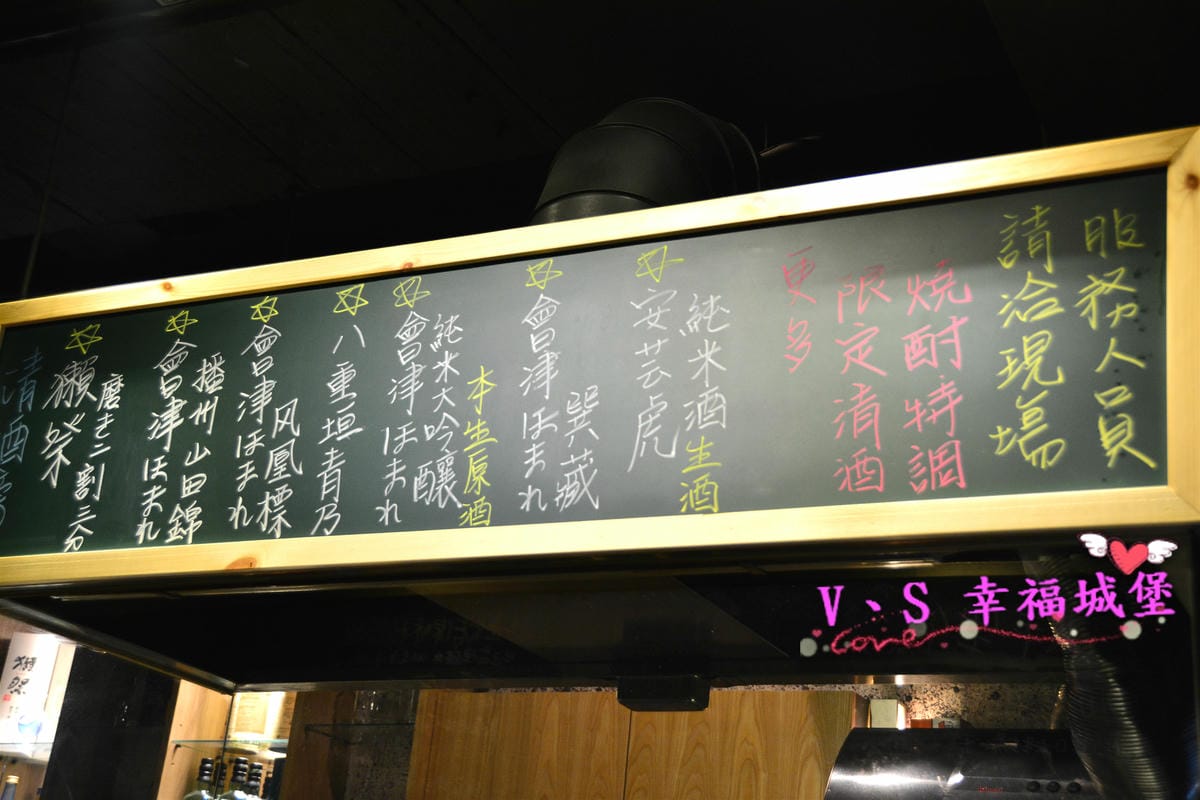 清酒
☆獺祭
磨き二割三分
☆會津ほまれ
播州山田錦
☆會津ほまれ
风凰標
☆八重垣青乃
☆會津ほまれ
純米大吟釀
本生原酒
☆會津ほまれ
巽藏
☆安芸虎
純米酒生酒
更多
限定清酒
燒酎特調
請洽現場
服務人員
V、S 幸福城堡
Love
獺祭